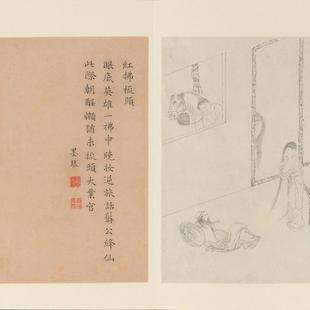 紅拂梳頭
眼底英雄一拂中曉妝逆旅話髯公絳仙
此際朝酲嬾猶未梳頭大業宮
墨琴